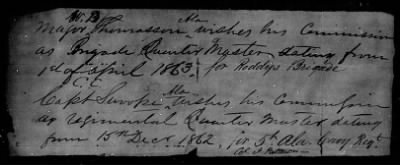 W. B. Ala
Major Thomasson wishes his Commission
as Brigade Quarter Master dating from
1st of April 1863, for Roddy's Brigade
Capt wishes his Commission
as regimental Quarter Master dating
from 15th Dec 1862, for 5th Ala Cavy Regt
Col.